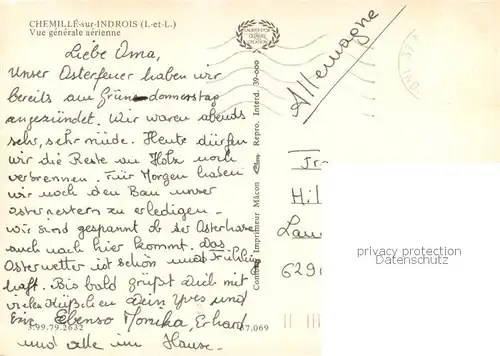 CHEMILLÉ-sur-INDROIS (I.-et-L.)
Vue générale aérienne
Allemagne
Liebe Oma,
Unser Osterfeuer haben wir
bereits am Gründonnerstag
angezündet. Wir waren abends
sehr, sehr müde. Heute dürfen
wir die Reste an Holz noch
verbrennen. Für Morgen haben
wir noch den Bau unser
Osternestern zu erledigen -
wir sind gespannt ob der Osterhase
auch nach hier kommt. Das
Osterwetter ist schön und frühling
haft. Bis bald grüßt Dich mit
vielen Küßchen Dein Yves und
Ebenso Monika, Erhard
und alle im Hause.
3.99.79.2632
67.069
Imprimeur Mâcon
Repro. Interd. 39-000
Hil
Lau
629
privacy protection
watermark